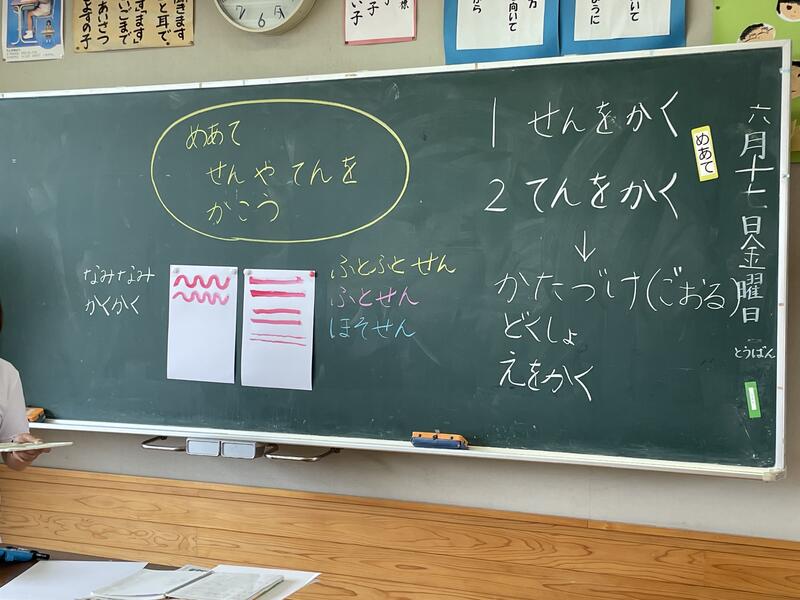 六月十七日金曜日
とうばん
めあて
1 せんをかく
2 てんをかく
↓
かたづけ(ごおる)
どくしょ
えをかく
めあて
せんやてんを
かこう
ふとふとせん
ふとせん
ほそせん
なみなみ
かくかく
いて
ように
方
向いて
から
様
子
い子
きます
と耳で。
す」
こまで
あいさつ
の子